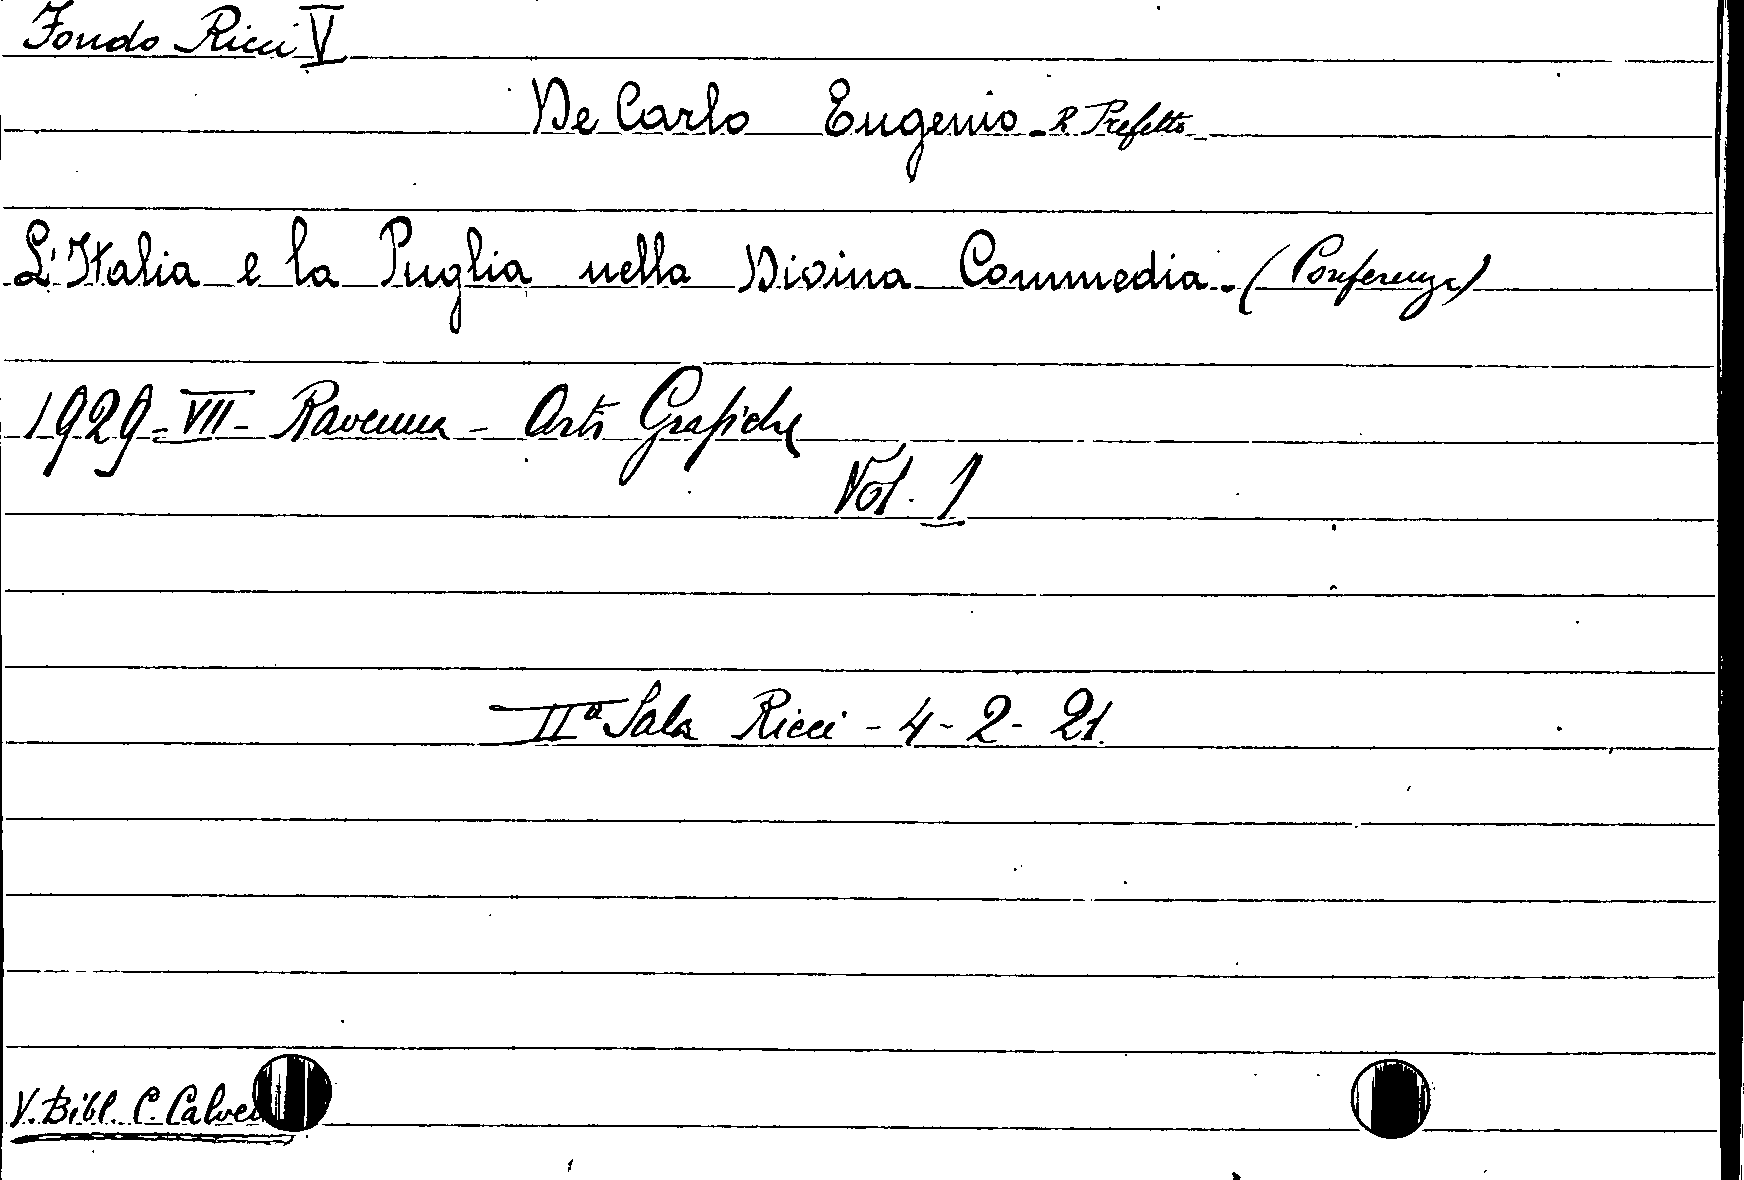 Fondo Ricci V
De Carlo Eugenio - R. Prefetto -
L'Italia e la Puglia nella Divina Commedia - (Conferenza)
1929 - VII - Ravenna - Arti Grafiche
Vol. 1
IIª Sala Ricci - 4 - 2 - 21.
V. Bibl. C. Calvei